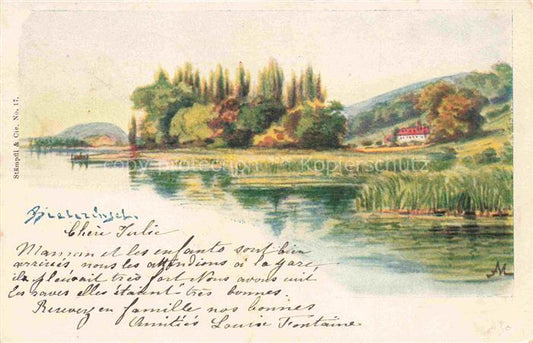 Stämpfli & Cie. No. 17.
Bielerinsel.
Chère Julie
Maman et les enfants sont bien
arrivés nous les attendions à la gare
il pleuvait très fort Nous avons cuit
les raves elles étaient très bonnes
Recevez en famille nos bonnes
Amitiés Louise Fontaine